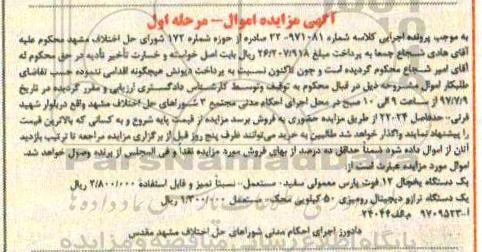 آگهی مزایده اموال - مرحله اول
به موجب پرونده اجرایی کلاسه شماره ۹۷۱۰۸۱-۲۲ صادره از حوزه شماره ۱۷۲ شورای حل اختلاف مشهد محکوم علیه
آقای هادی شجاع جمعا به پرداخت مبلغ ۲۶/۲۰۷/۹۱۸ ریال بابت اصل خواسته و خسارت تأخیر تأدیه در حق محکوم له
آقای امیر شجاع محکوم گردیده است و چون تاکنون نسبت به پرداخت دیونش هیچگونه اقدامی ننموده حسب تقاضای
طلبکار اموال مشروحه ذیل در قبال محکوم به توقیف وتوسط کارشناس دادگستری ارزیابی و مقرر گردیده در تاریخ
۹۷/۷/۹ از ساعت ۹ الی ۱۰ صبح در محل اجرای احکام مدنی مجتمع ۳ شوراهای حل اختلاف مشهد واقع دربلوار شهید
قرنی- حدفاصل ۲۲و۲۴ از طریق مزایده حضوری به فروش برسد مزایده از قیمت پایه شروع و به کسانی که بالاترین قیمت
را پیشنهاد نمایند واگذار خواهد شد طالبین به خرید می‌توانند ظرف پنج روز قبل از برگزاری مزایده مراجعه تا ترتیب بازدید
آنان از اموال داده شود ضمنا حداقل ده درصد از بهای فروش مورد مزایده نقدا و فی المجلس از برنده وصول خواهد شد.
اموال مورد مزایده عبارت است از:
یک دستگاه یخچال ۱۲ فوت پارس معمولی سفید- مستعمل- نسبتا تمیز و قابل استفاده ۲/۸۰۰/۰۰۰ ریال
یک دستگاه ترازو دیجیتال رومیزی ۵۰ کیلویی محک- مستعمل ریال
آ-۹۷۰۹۵۲۳
دادورز اجرای احکام مدنی شوراهای حل اختلاف مشهد مقدس
ParsNamadData